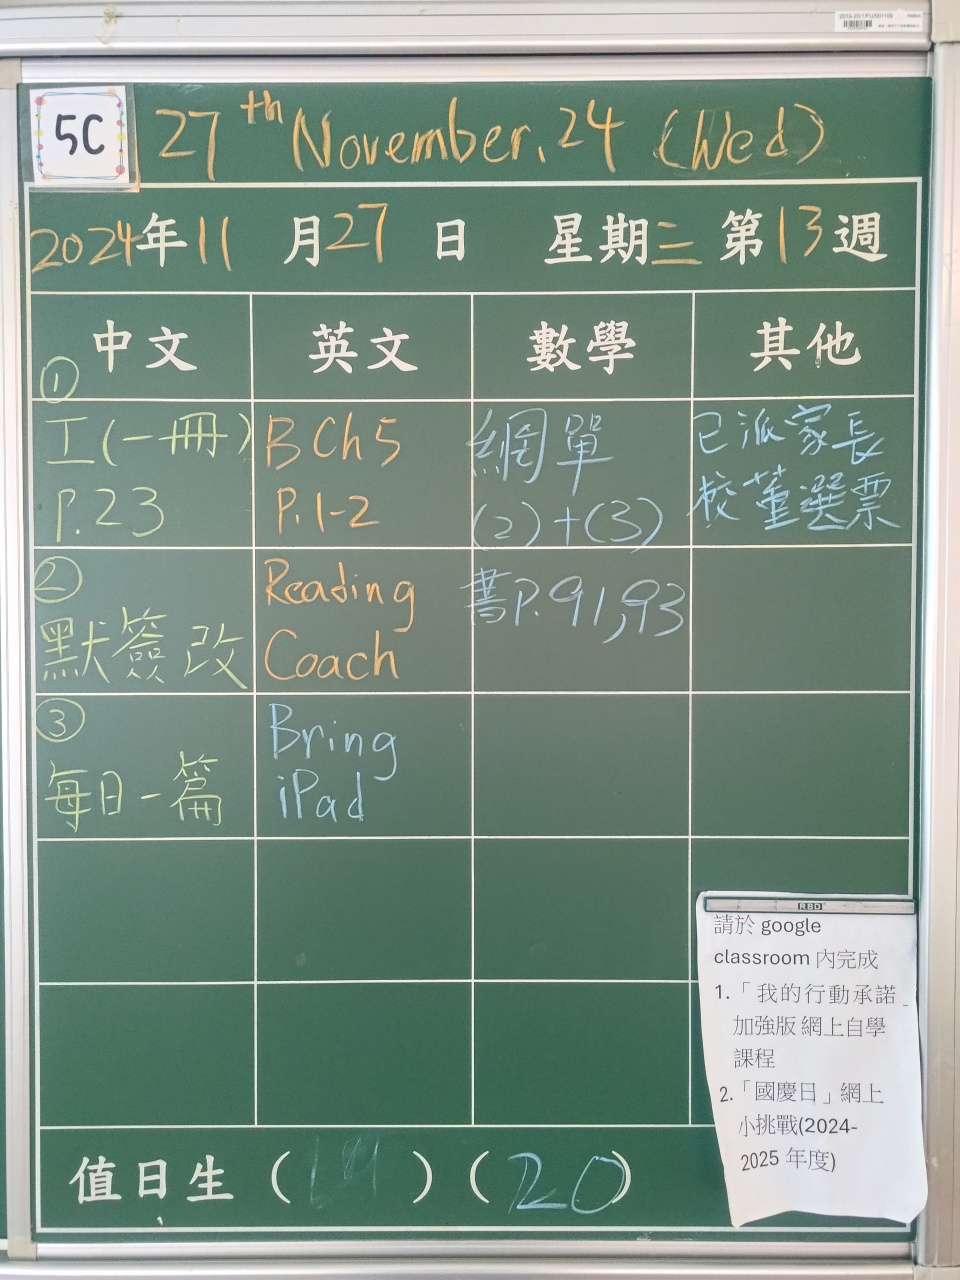 5C
27th November.24 (Wed)
2024年11月27日 星期三 第13週
中文
①
工(一冊)
P.23
②
默簽改
③
每日一篇
英文
B Ch5
P.1-2
Reading
Coach
Bring
iPad
數學
網單
(2)+(3)
書P.91,93
其他
已派家長
校董選票
RBD
請於 google
classroom 內完成
1.「我的行動承諾
加強版 網上自學
課程
2.「國慶日」網上
小挑戰(2024-
2025 年度)
值日生 ( ) (20)